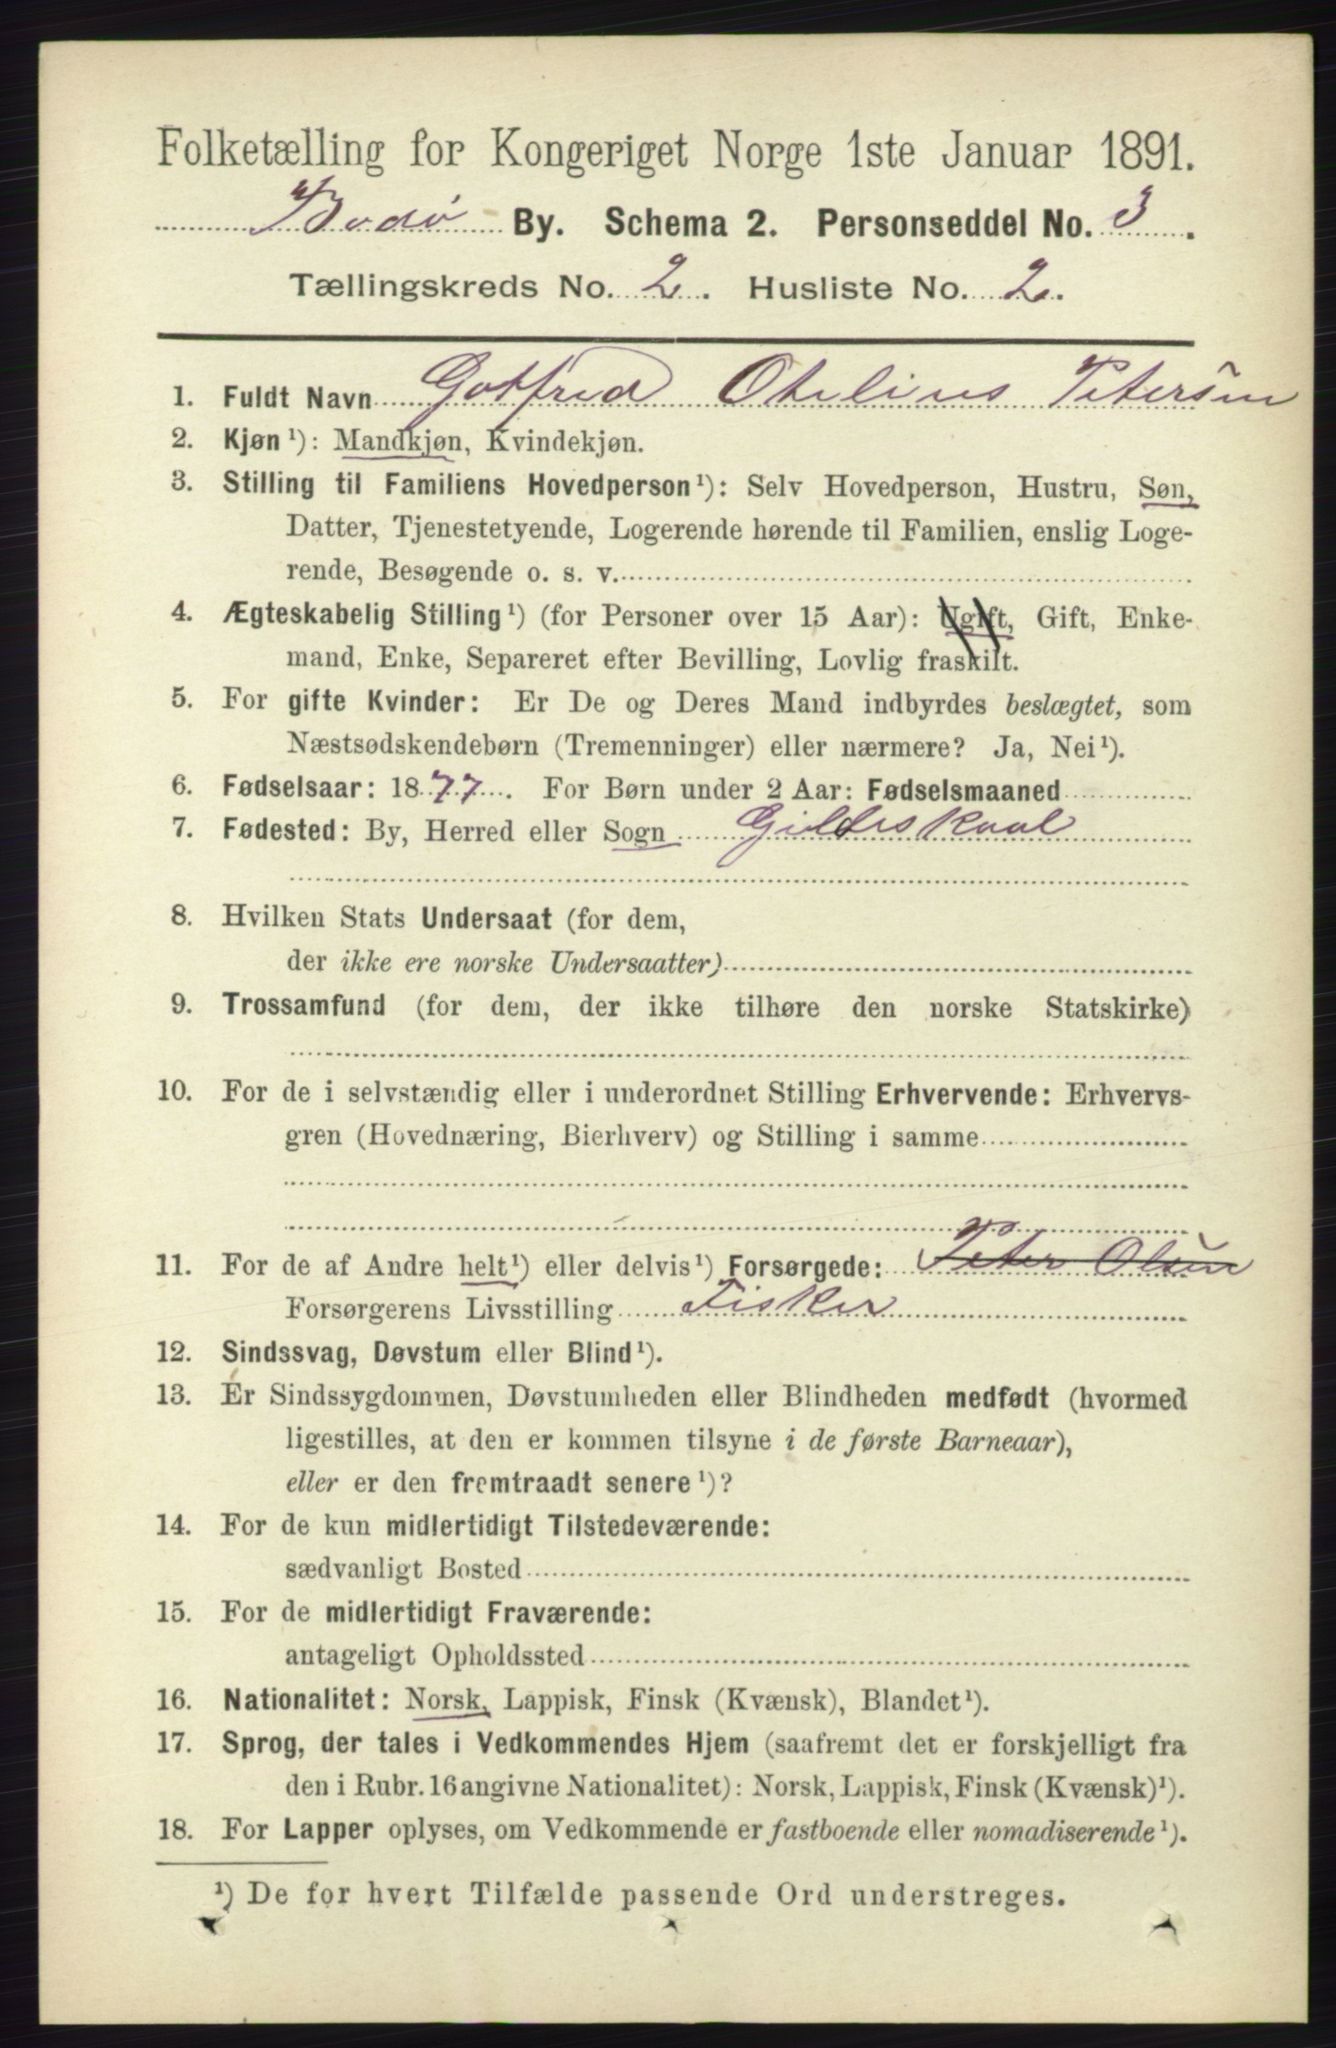 Folketælling for Kongeriget Norge 1ste Januar 1891.
Bodø By. Schema 2. Personseddel No. 3.
Tællingskreds No. 2. Husliste No. 2.
1. Fuldt Navn Gotfred Otelius Petersen
2. Kjøn¹): Mandkjøn, Kvindekjøn.
3. Stilling til Familiens Hovedperson¹): Selv Hovedperson, Hustru, Søn,
Datter, Tjenestetyende, Logerende hørende til Familien, enslig Loge-
rende, Besøgende o. s. v.
4. Ægteskabelig Stilling¹) (for Personer over 15 Aar): Ugift, Gift, Enke-
mand, Enke, Separeret efter Bevilling, Lovlig fraskilt.
5. For gifte Kvinder: Er De og Deres Mand indbyrdes beslægtet, som
Næstsødskendebørn (Tremenninger) eller nærmere? Ja, Nei¹).
6. Fødselsaar: 1877. For Børn under 2 Aar: Fødselsmaaned
7. Fødested: By, Herred eller Sogn Gildeskaal
8. Hvilken Stats Undersaat (for dem,
der ikke ere norske Undersaatter)
9. Trossamfund (for dem, der ikke tilhøre den norske Statskirke)
10. For de i selvstændig eller i underordnet Stilling Erhvervende: Erhvervs-
gren (Hovednæring, Bierhverv) og Stilling i samme
11. For de af Andre helt¹) eller delvis¹) Forsørgede: Peter Olsen
Forsørgerens Livsstilling Fisker
12. Sindssvag, Døvstum eller Blind¹).
13. Er Sindssygdommen, Døvstumheden eller Blindheden medfødt (hvormed
ligestilles, at den er kommen tilsyne i de første Barneaar),
eller er den fremtraadt senere¹)?
14. For de kun midlertidigt Tilstedeværende:
sædvanligt Bosted
15. For de midlertidigt Fraværende:
antageligt Opholdssted
16. Nationalitet: Norsk, Lappisk, Finsk (Kvænsk), Blandet¹).
17. Sprog, der tales i Vedkommendes Hjem (saafremt det er forskjelligt fra
den i Rubr. 16 angivne Nationalitet): Norsk, Lappisk, Finsk (Kvænsk)¹).
18. For Lapper oplyses, om Vedkommende er fastboende eller nomadiserende¹).
¹) De for hvert Tilfælde passende Ord understreges.